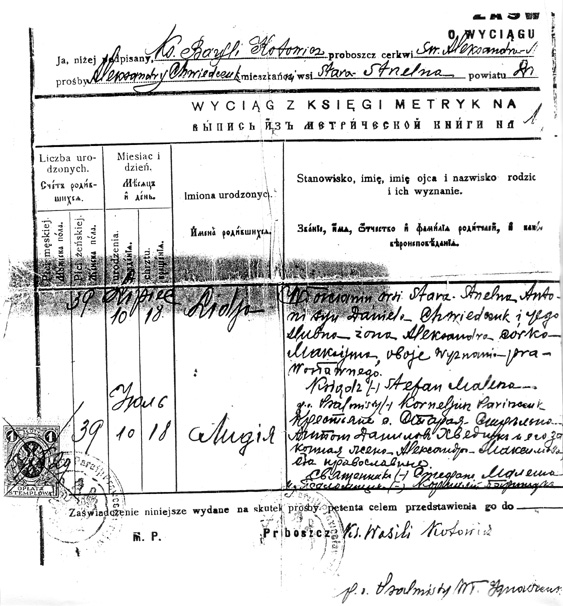 ZAŚW
O WYCIĄGU
Ja, niżej podpisany, Ks. Bazyli Kotowicz proboszcz cerkwi Św. Aleksandra
prośby Aleksandry Chwiedczuk mieszkańca wsi Stara Strelna powiatu
WYCIĄG Z KSIĘGI METRYK NA
ВЫПИСЬ ИЗЪ МЕТРИЧЕСКОЙ КНИГИ НА 1
Liczba uro-
dzonych.
Счетъ родив-
шихся.
Miesiąc i
dzień.
Месяцъ
и день.
Imiona urodzonych.
Имена родившихся.
Stanowisko, imię, imię ojca i nazwisko rodzic
i ich wyznanie.
Званіе, имя, отчество и фамилія родителей, и какого
вероисповеданія.
Płci męskiej.
Мужеска пола.
Płci żeńskiej.
Женска пола.
urodzenia.
рожденія.
chrztu.
крещенія.
39 Lipiec Lidja
10 18
Włościanin wsi Stara Strelna Anto-
ni syn Daniela Chwiedczuk i jego
ślubna żona Aleksandra córka
Maksyma, oboje wyznania pra-
wosławnego.
Ksiądz (-) Stefan Malesza
p.o. Psalmisty (-) Korneljusz
Іюль
39 10 18 Лидія
Крестьяне с. Старая Стрельна
Антонъ Даниловъ Хведчукъ и его за-
конная жена Александра Максимова
оба православные.
Священникъ (-) Стефанъ Малеша
1 1
OPŁATA
STEMPLOWA
Zaświadczenie niniejsze wydane na skutek prośby petenta celem przedstawienia go do
M. P. Proboszcz Ks. Wasili Kotowicz
p. o. Psalmisty Wł.